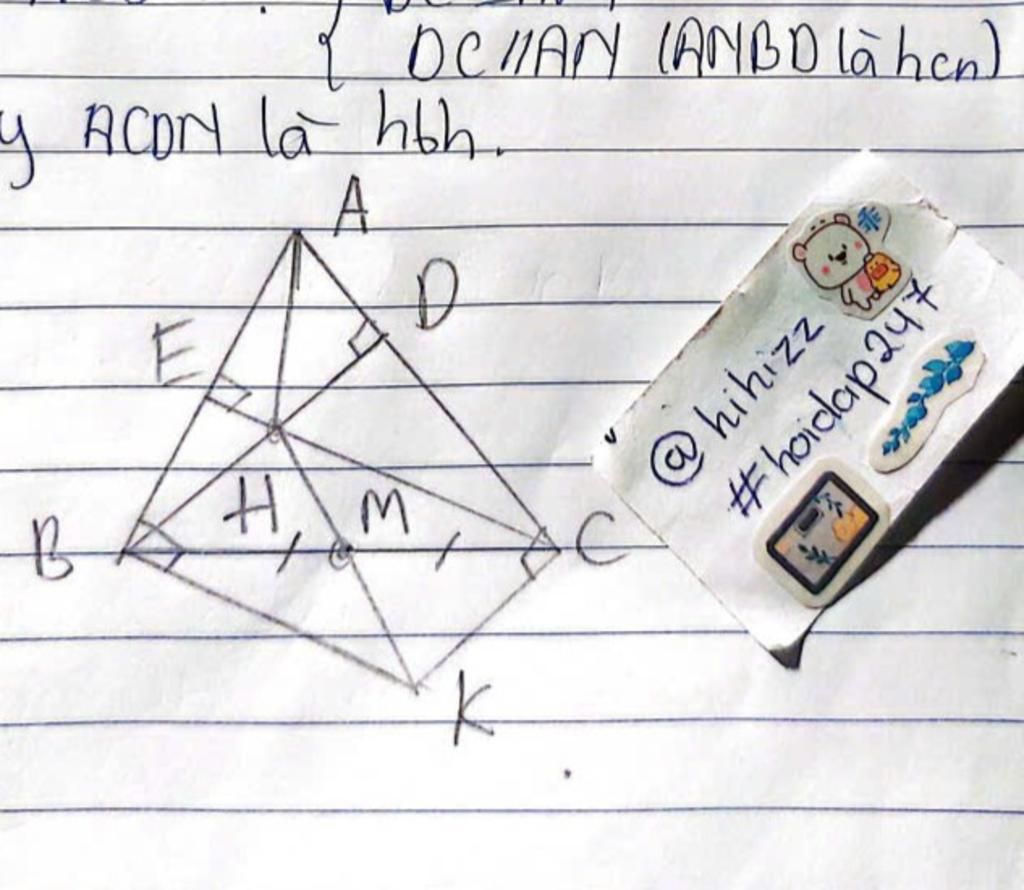 DC//AN (ANBD là hcn)
y ACDN là hbh.
A
D
E
H
M
B
C
K
@hihizz
#hoidap247